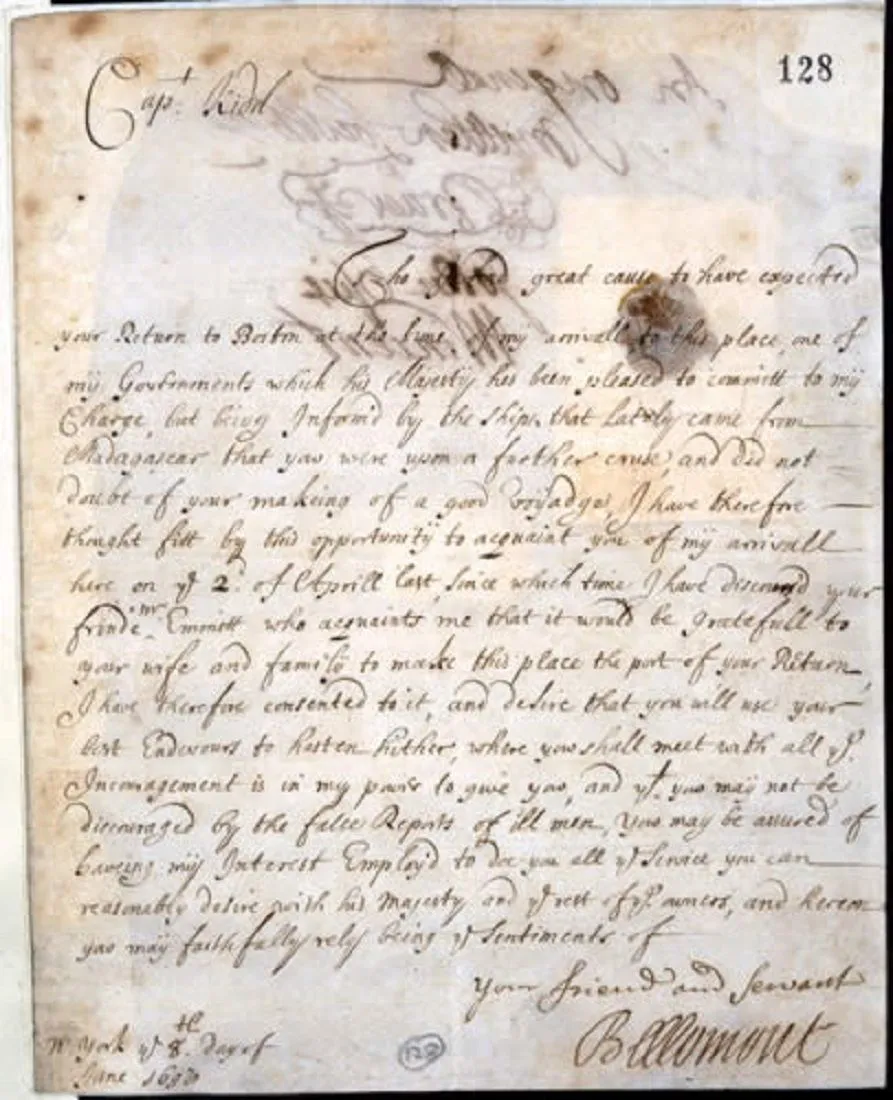 128
Capt. Kidd
Tho I had great cause to have expected
your Return to Boston at the time of my arrivall to this place, one of
my Governments which his Majesty has been pleased to comitt to my
Charge, but being Inform'd by the ships that Lately came from
Madagascar that you were upon a further cruse, and did not
doubt of your makeing of a good voyadge, I have therefore
thought fitt by this opportunity to acquaint you of my arrivall
here on ye 2d. of Aprill last, since which time I have discoursd your
frinde mr Emmott who acquaints me that it would be gratefull to
your wife and family to make this place the port of your Return,
I have therefore consented to it, and desire that you will use your
best Endevours to hasten hither, where you shall meet with all ye
Incouragement is in my power to give you, and yt. you may not be
discouraged by the false Reports of ill men, you may be assured of
haveing my Interest Employ'd to doe you all ye Service you can
reasonably desire with his Majesty and ye rest of yr. owners, and hereon
you may faithfully rely being ye Sentiments of
Your friend and Servant
Bellomont
N York ye 8th. Day of
June 169
128